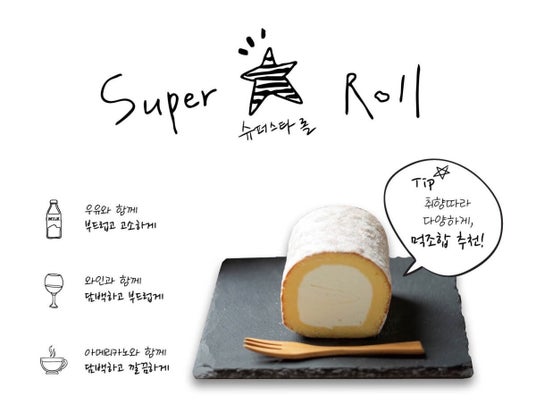 Super ☆ Roll
슈퍼스타 롤
Tip ☆
취향따라
다양하게,
먹조합 추천!
MILK
우유와 함께
부드럽고 고소하게
와인과 함께
담백하고 부드럽게
아메리카노와 함께
담백하고 깔끔하게